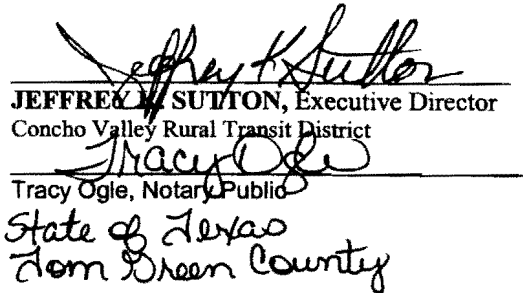 Jeffrey K Sutton
JEFFREY K. SUTTON, Executive Director
Concho Valley Rural Transit District
Tracy Ogle
Tracy Ogle, Notary Public
State of Texas
Tom Green County